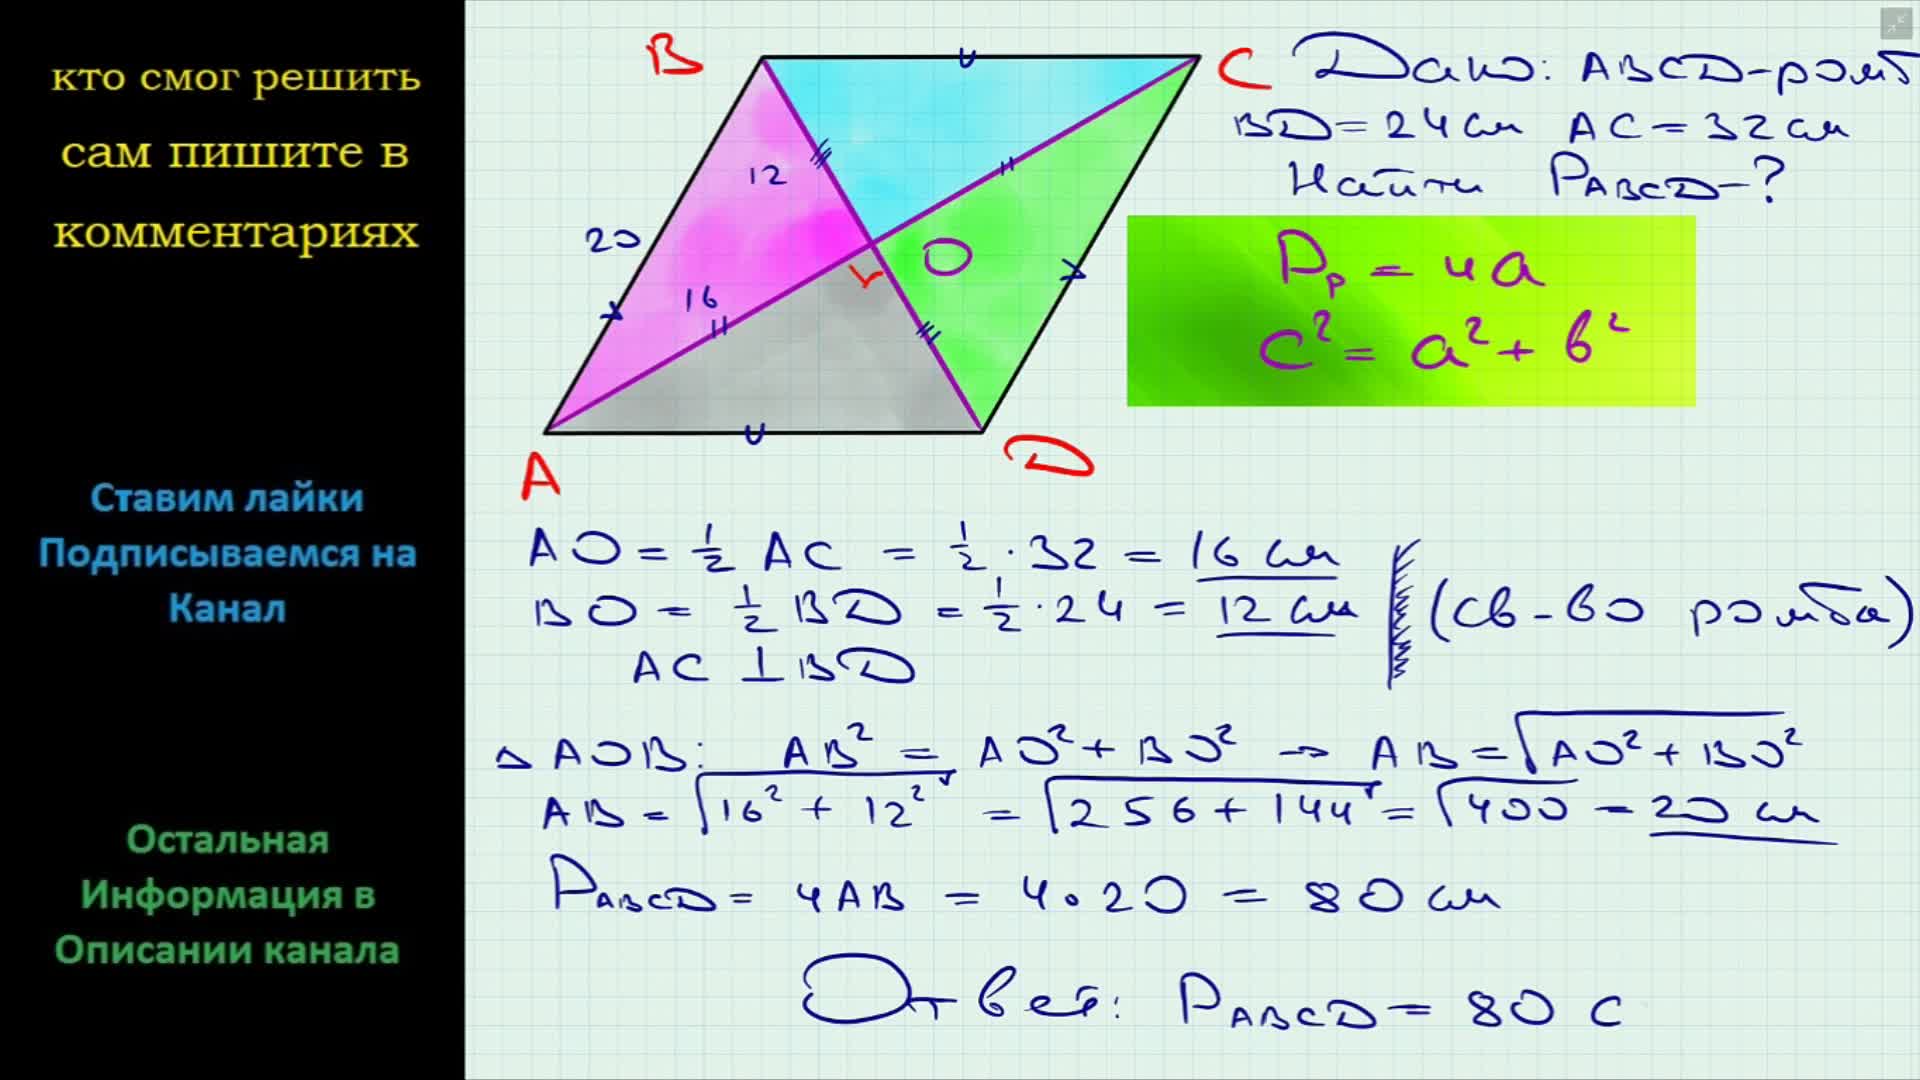 кто смог решить
сам пишите в
комментариях
Ставим лайки
Подписываемся на
Канал
Остальная
Информация в
Описании канала
B
C
12
20
16
O
A
D
Дано: ABCD-ромб
BD=24см AC=32см
Найти P_ABCD-?
P_р = 4a
c² = a² + b²
AO = 1/2 AC = 1/2 · 32 = 16 см
BO = 1/2 BD = 1/2 · 24 = 12 см
(св-во ромба)
AC ⊥ BD
△AOB: AB² = AO² + BO² → AB = √AO² + BO²
AB = √16² + 12² = √256 + 144 = √400 = 20 см
P_ABCD = 4AB = 4 · 20 = 80 см
Ответ: P_ABCD = 80 с